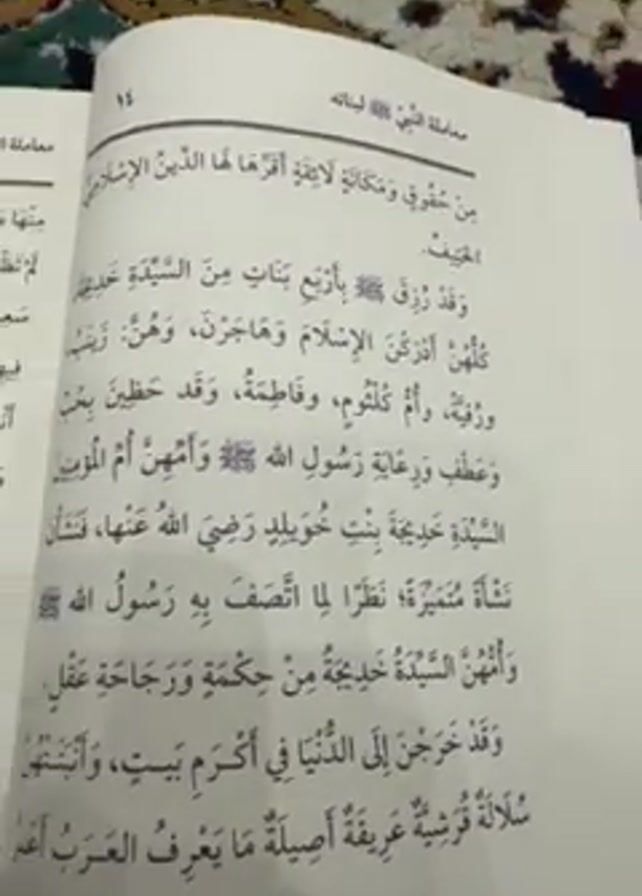 معاملة النَّبِيِّ ﷺ لبناته
١٤
مِنْ حُقُوقٍ وَمَكَانَةٍ لَائِقَةٍ أَقَرَّهَا لَهَا الدِّينُ الإِسْلَامِيُّ
الحَنِيفُ.
وَقَدْ رُزِقَ ﷺ بِأَرْبَعِ بَنَاتٍ مِنَ السَّيِّدَةِ خَدِيجَةَ
كُلُّهُنَّ أَدْرَكْنَ الإِسْلَامَ وَهَاجَرْنَ، وَهُنَّ: زَيْنَبُ
ورُقَيَّةُ، وأُمُّ كُلْثُومٍ، وفَاطِمَةُ، وَقَد حَظِينَ بِحُبِّ
وَعَطْفِ وَرِعَايَةِ رَسُولِ الله ﷺ وَأُمِّهِنَّ أُمِّ
السَّيِّدَةِ خَدِيجَةَ بِنْتِ خُوَيْلِدٍ رَضِيَ اللهُ عَنْها، فَنَشَأْنَ
نَشْأَةً مُتَمَيِّزَةً؛ نَظَرًا لِمَا اتَّصَفَ بِهِ رَسُولُ الله ﷺ
وَأُمُّهُنَّ السَّيِّدَةُ خَدِيجَةُ مِنْ حِكْمَةٍ وَرَجَاحَةِ عَقْلٍ.
وَقَدْ خَرَجْنَ إِلَى الدُّنْيَا فِي أَكْرَمِ بَيْتٍ، وَأَنْبَتَتْهُنَّ
سُلَالَةٌ قُرَشِيَّةٌ عَرِيقَةٌ أَصِيلَةٌ مَا يَعْرِفُ العَرَبُ
معاملة
مِنْهَا